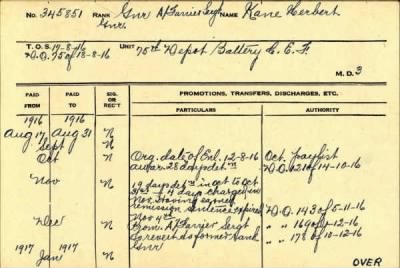 No. 345851 RANK Gnr A/Farrier Sergt NAME Kane Herbert
Gnr.
T.O.S. 17-8-16 UNIT 75th Depot Battery C.E.F.
D.O. 75 of 18-8-16
M.D. 3
PAID FROM PAID TO SIG. OR REC'T PROMOTIONS, TRANSFERS, DISCHARGES, ETC.
PARTICULARS AUTHORITY
1916 1916
Aug 17 Aug 31 N
Sept N
Oct N Org. date of Enl. 12-8-16 Oct. paylist
28 days detn D.O. 121 of 14-10-16
Nov N 19 days detn in Oct to Oct
31st 4 days charged in
Nov. Having earned D.O. 143 of 5-11-16
remission sentence expired
Nov 4th
Dec N Prom. A/Farrier Sergt " " 169 of 1-12-16
to revert to former Rank " " 178 of 10-12-16
1917 1917 Gnr
Jan N
OVER